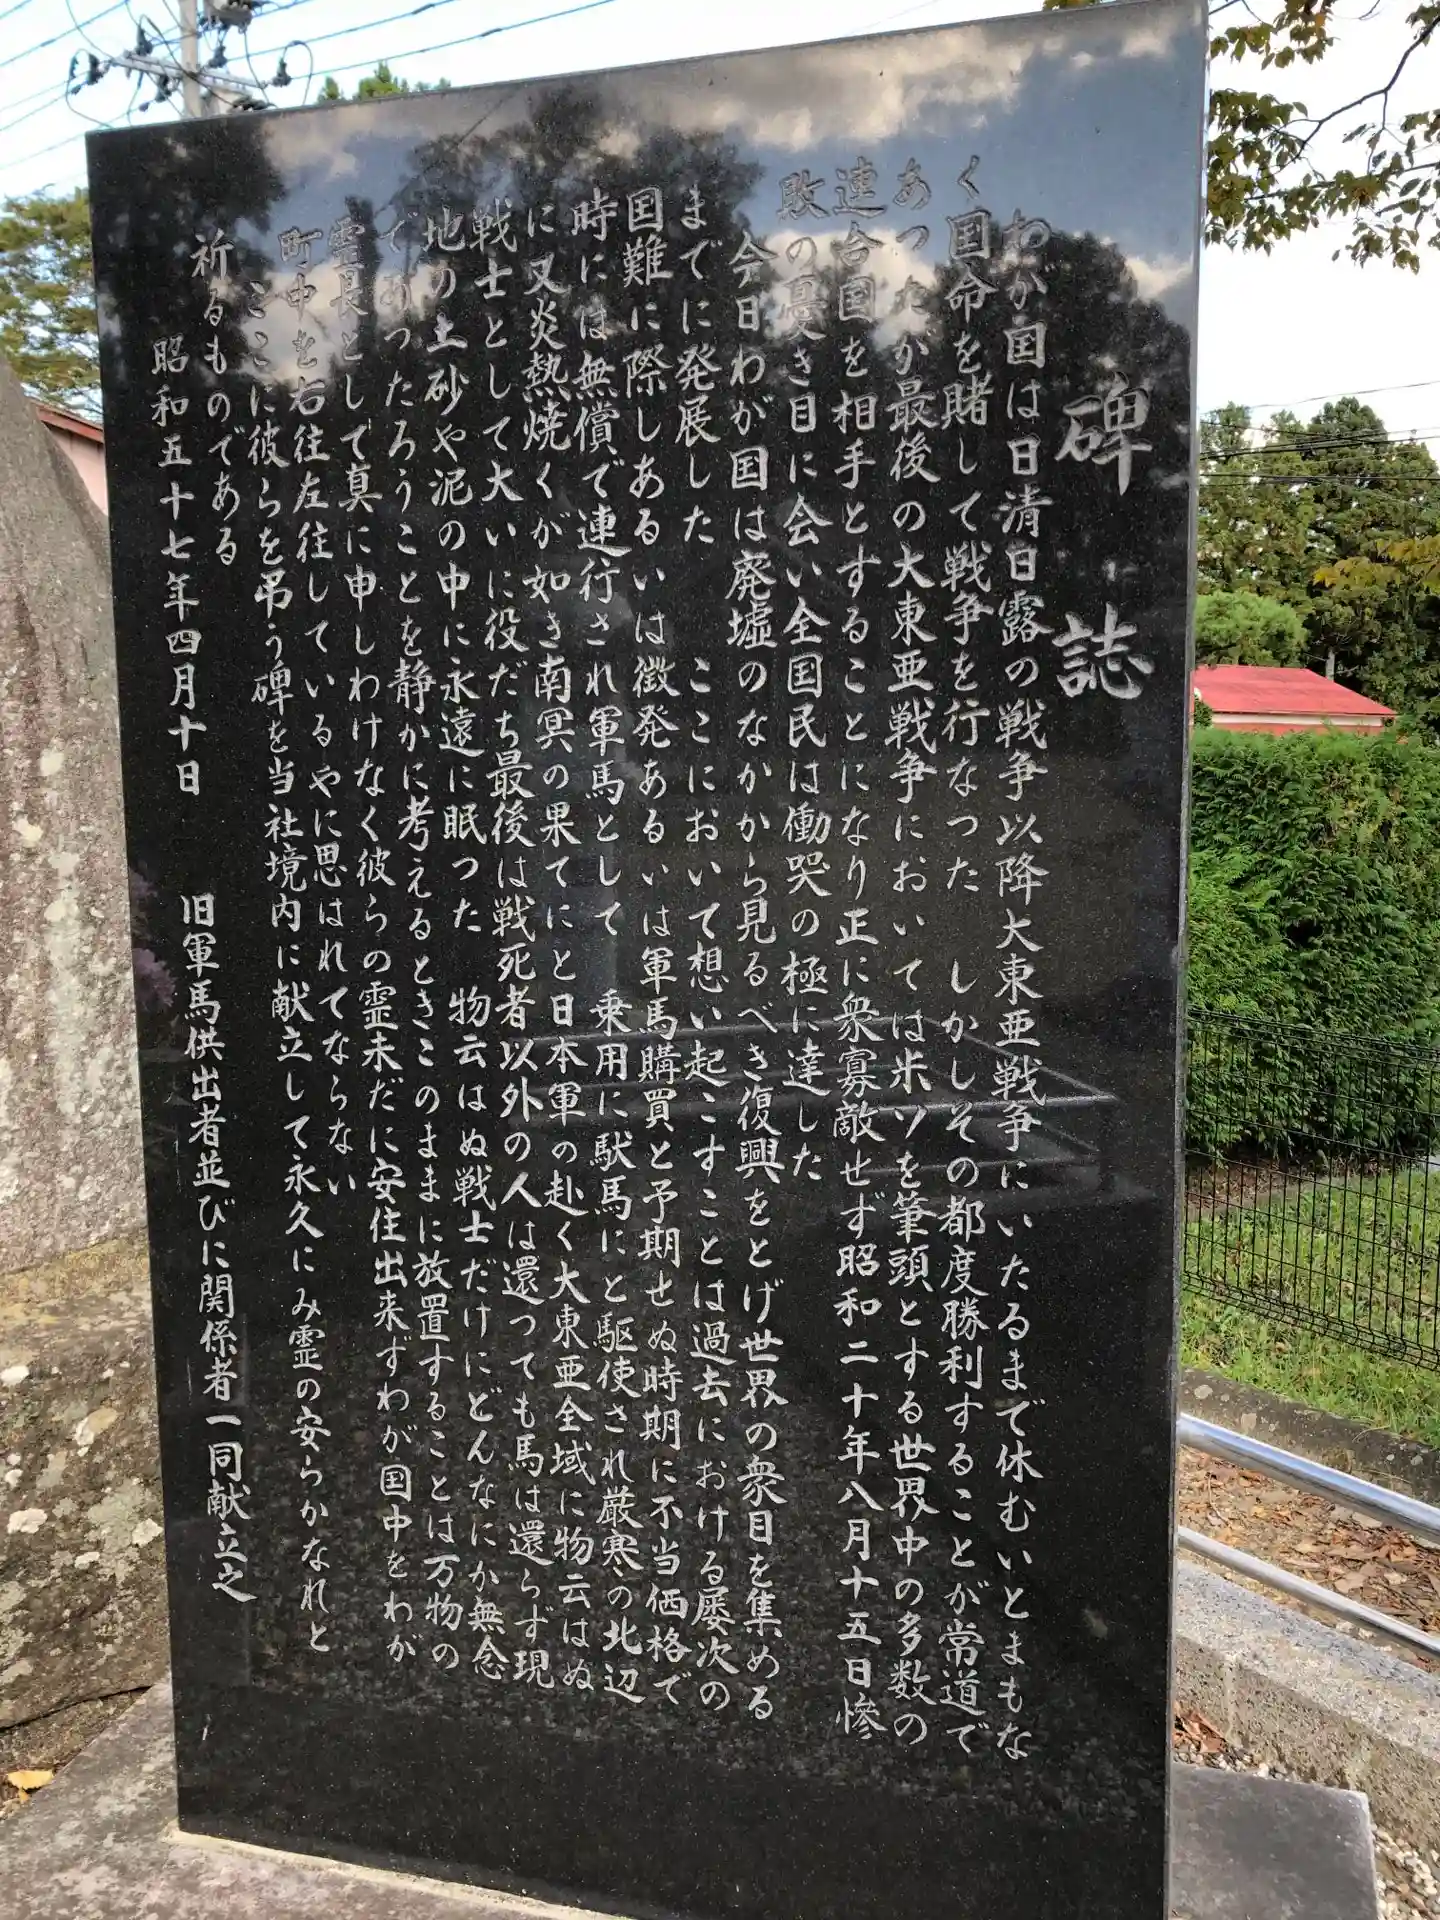 碑誌
わが国は日清日露の戦争以降大東亜戦争にいたるまで休むいとまもな
く国命を賭して戦争を行なった しかしその都度勝利することが常道で
あったが最後の大東亜戦争においては米ソを筆頭とする世界中の多数の
連合国を相手とすることになり正に衆寡敵せず昭和二十年八月十五日惨
敗の憂き目に会い全国民は慟哭の極に達した
今日わが国は廃墟のなかから見るべき復興をとげ世界の衆目を集める
までに発展した ここにおいて想い起こすことは過去における屡次の
国難に際しあるいは徴発あるいは軍馬購買と予期せぬ時期に不当価格で
時には無償で連行され軍馬として 乗用に駄馬にと駆使され厳寒の北辺
に又炎熱焼くが如き南冥の果てにと日本軍の赴く大東亜全域に物云はぬ
戦士として大いに役だち最後は戦死者以外の人は還っても馬は還らず現
地の土砂や泥の中に永遠に眠った 物云はぬ戦士だけにどんなにか無念
であったろうことを静かに考えるときこのままに放置することは万物の
霊長として真に申しわけなく彼らの霊未だに安住出来ずわが国中をわが
町中を右往左往しているやに思はれてならない
ここに彼らを弔う碑を当社境内に献立して永久にみ霊の安らかなれと
祈るものである
昭和五十七年四月十日 旧軍馬供出者並びに関係者一同献立之